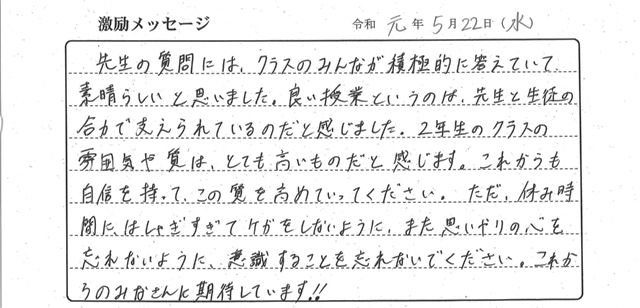 激励メッセージ 令和 元 年 5 月 22 日 (水)
先生の質問には、クラスのみんなが積極的に答えていて
素晴らしいと思いました。良い授業というのは、先生と生徒の
合力で支えられているのだと感じました。2年生のクラスの
雰囲気や質は、とても高いものだと感じます。これからも
自信を持って、この質を高めていってください。ただ、休み時
間に、はしゃぎすぎてケガをしないように、また思いやりの心を
忘れないように、意識することを忘れないでください。これか
らのみなさんに期待しています!!